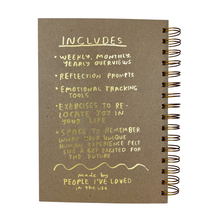 INCLUDES
• WEEKLY, MONTHLY,
YEARLY OVERVIEWS
• REFLECTION PROMPTS
• EMOTIONAL TRACKING
TOOLS
• EXERCISES TO RE-
LOCATE JOY IN
YOUR LIFE
• SPACE TO REMEMBER
WHAT YOUR UNIQUE
HUMAN EXPERIENCE FELT
LIKE & GET EXCITED FOR
THE FUTURE
made by
PEOPLE I'VE LOVED
in the USA